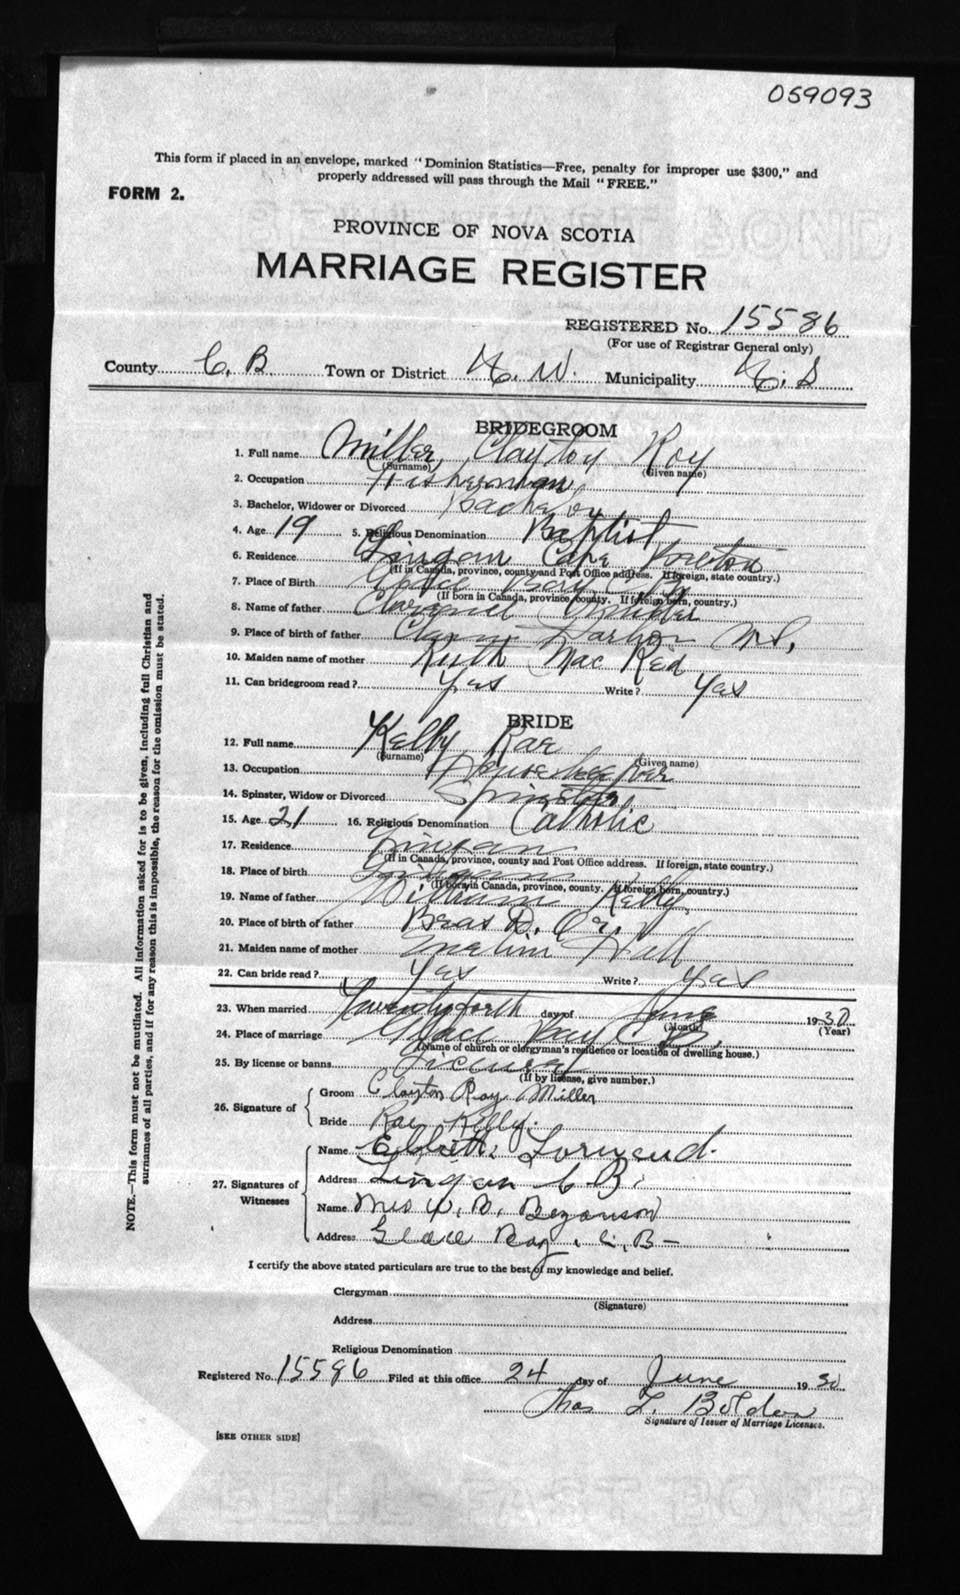 059093
This form if placed in an envelope, marked "Dominion Statistics—Free, penalty for improper use $300," and
properly addressed will pass through the Mail "FREE."
FORM 2.
PROVINCE OF NOVA SCOTIA
MARRIAGE REGISTER
REGISTERED No. 15586
(For use of Registrar General only)
County C. B. Town or District N. W. Municipality
BRIDEGROOM
1. Full name Miller, Clayton Roy
(Surname) (Given name)
2. Occupation Fisherman
3. Bachelor, Widower or Divorced Bachelor
4. Age 19 5. Religious Denomination Baptist
6. Residence Lingan Cape Breton
(If in Canada, province, county and Post Office address. If foreign, state country.)
7. Place of Birth Glace Bay C B
(If born in Canada, province, county. If foreign born, country.)
8. Name of father Miller
9. Place of birth of father Harbor N S,
10. Maiden name of mother Ruth Mac Red
11. Can bridegroom read? Yes Write? Yes
BRIDE
12. Full name Kelly Rae
(Surname) (Given name)
13. Occupation Housekeeper
14. Spinster, Widow or Divorced Spinster
15. Age 21 16. Religious Denomination Catholic
17. Residence Lingan
(If in Canada, province, county and Post Office address. If foreign, state country.)
18. Place of birth Lingan
(If born in Canada, province, county. If foreign born, country.)
19. Name of father William Kelly
20. Place of birth of father Bras D. Or.
21. Maiden name of mother Hall
22. Can bride read? Yes Write? Yes
23. When married Twentyforth day of June 1930
(Month) (Year)
24. Place of marriage Glace Bay C B,
(Name of church or clergyman's residence or location of dwelling house.)
25. By license or banns License
(If by license, give number.)
26. Signature of
Groom Clayton Roy Miller
Bride Rae Kelly.
27. Signatures of Witnesses
Name
Address Lingan C B.
Name Mrs W. B. Bezanson
Address Glace Bay, C. B—
I certify the above stated particulars are true to the best of my knowledge and belief.
Clergyman
(Signature)
Address
Religious Denomination
Registered No. 15586 Filed at this office 24 day of June 1930
Thos L. Bolden
Signature of Issuer of Marriage Licenses.
[SEE OTHER SIDE]
NOTE.—This form must not be mutilated. All information asked for is to be given, including full Christian and
surnames of all parties, and if for any reason this is impossible, the reason for the omission must be stated.